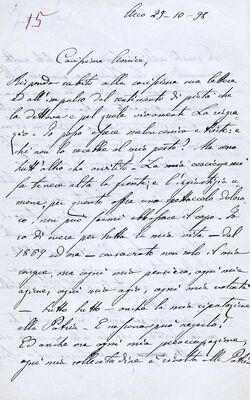 15
29-10-98
Carissima Amica,
Rispondo subito alla carissima sua lettera
ed all'impulso del sentimento di pietà che
la dettava e pel quale vivamente La ringra
zio. Io dopo essere malinconico e triste: e
chi non lo sarebbe al mio posto? Ma sono
tutt'altro che avvilito. La mia coscienza mi
fa tenere alta la fronte; e l'ingiustizia u
mana, per quanto offra uno spettacolo doloro
so, non può farmi abbassare il capo. Io
so di avere per tutta la mia vita - dal
1859 ad ora - consacrato non solo il mio
sangue, ma ogni mio pensiero, ogni mia
azione, ogni mio agio, ogni mia volontà
- tutto tutto - anche la mia riputazione
alla Patria. E nessuno può negarlo.
Ed anche ora ogni mia preoccupazione,
ogni mia sollecitudine è rivolta alla Patria